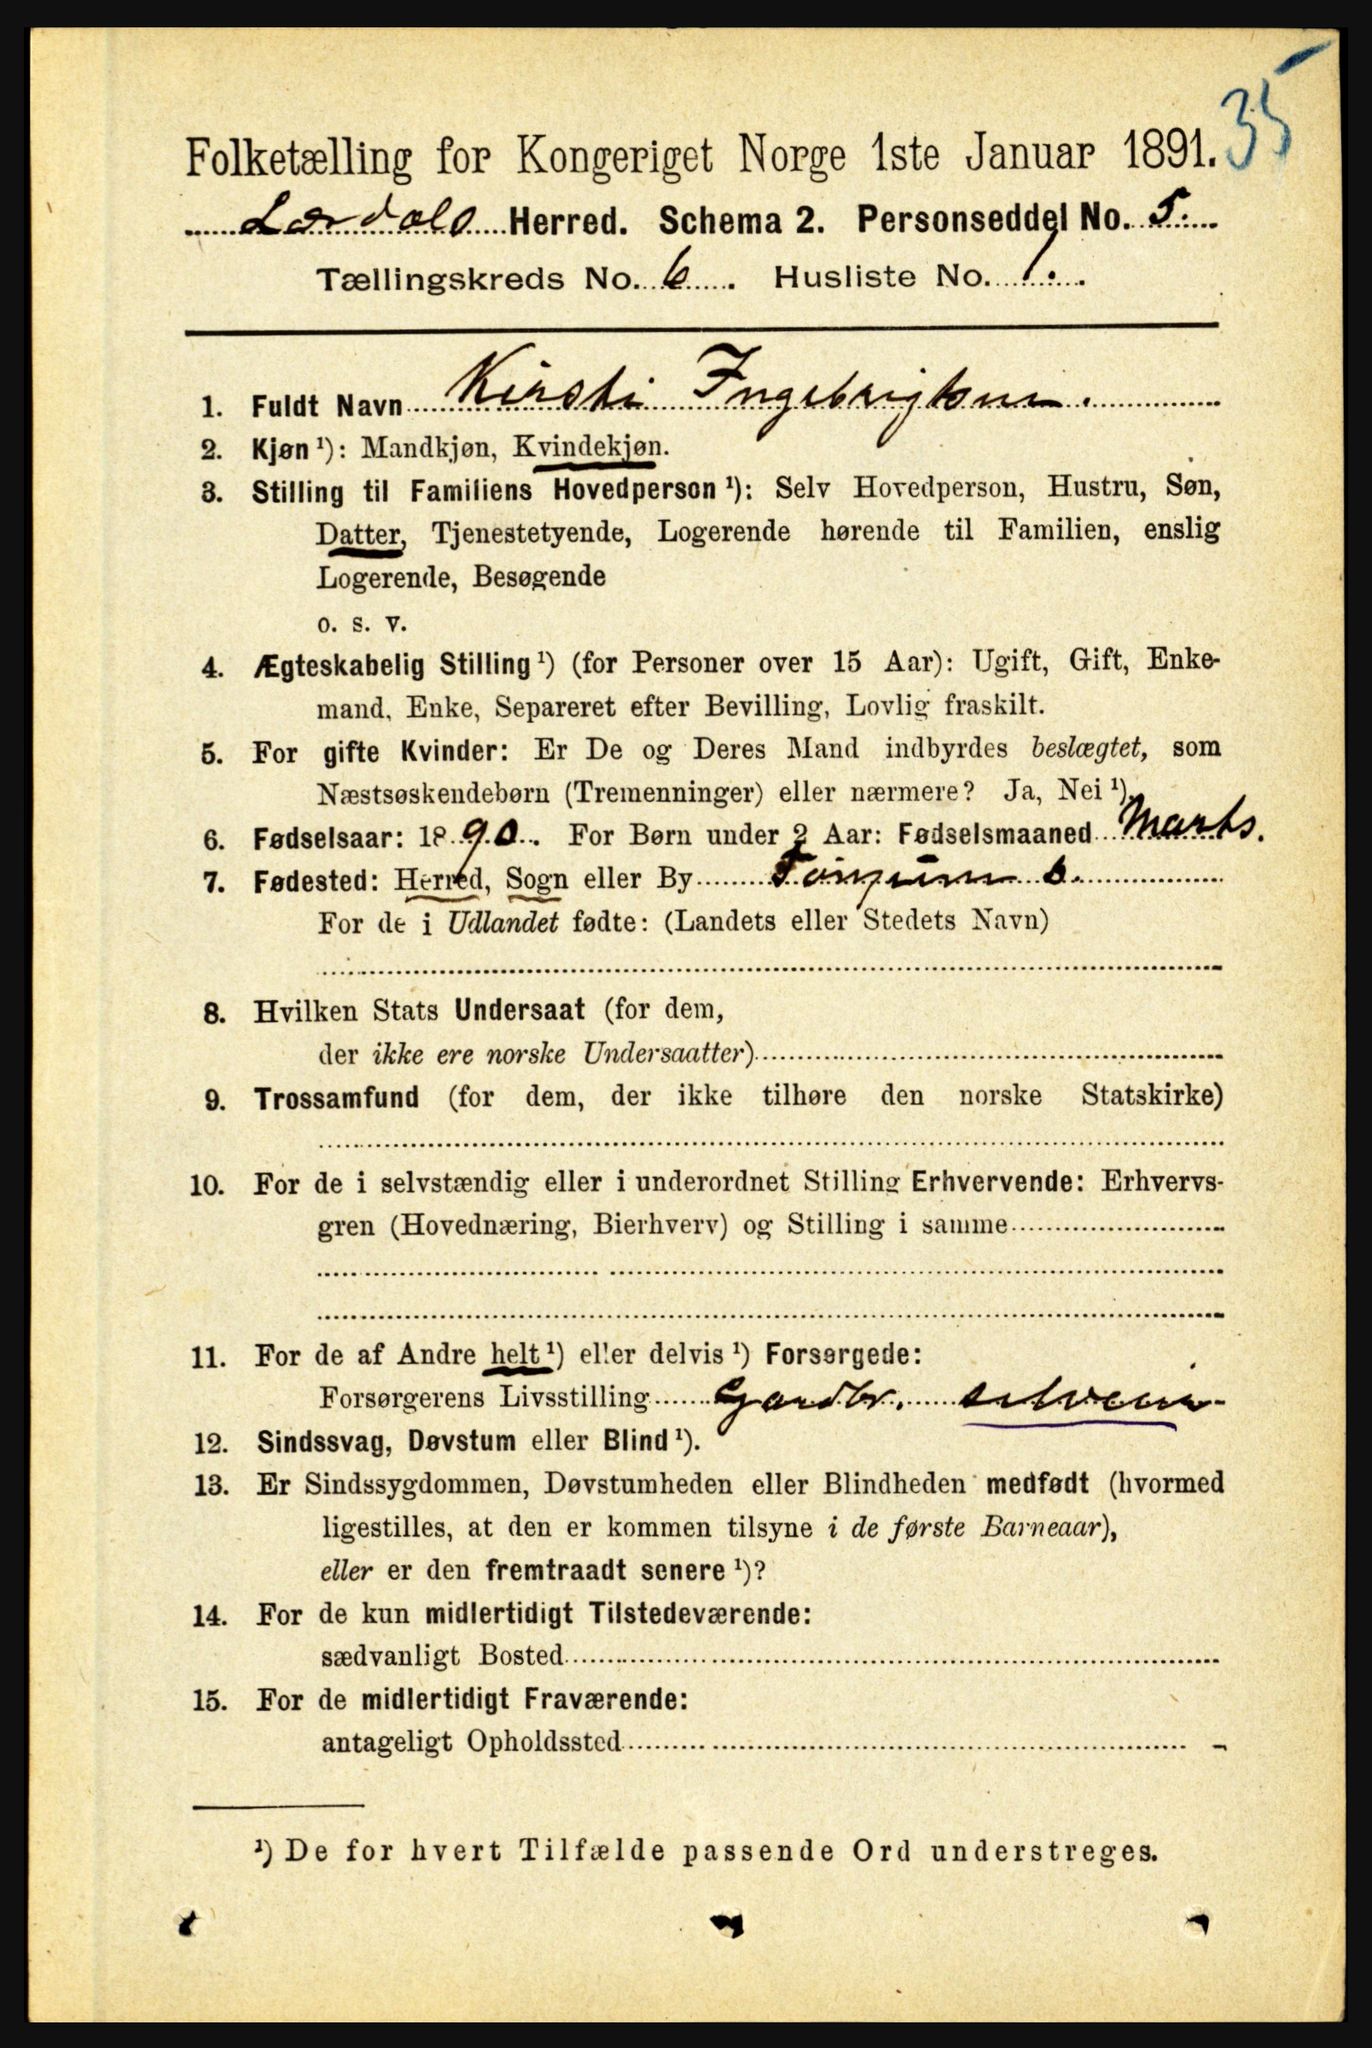 35
Folketælling for Kongeriget Norge 1ste Januar 1891.
Lærdals Herred. Schema 2. Personseddel No. 5.
Tællingskreds No. 6. Husliste No. 1.
1. Fuldt Navn Kirsti Ingebrigtsen.
2. Kjøn ¹): Mandkjøn, Kvindekjøn.
3. Stilling til Familiens Hovedperson ¹): Selv Hovedperson, Hustru, Søn,
Datter, Tjenestetyende, Logerende hørende til Familien, enslig
Logerende, Besøgende
o. s. v.
4. Ægteskabelig Stilling ¹) (for Personer over 15 Aar): Ugift, Gift, Enke-
mand, Enke, Separeret efter Bevilling, Lovlig fraskilt.
5. For gifte Kvinder: Er De og Deres Mand indbyrdes beslægtet, som
Næstsøskendebørn (Tremenninger) eller nærmere? Ja, Nei ¹).
6. Fødselsaar: 1890. For Børn under 2 Aar: Fødselsmaaned Marts.
7. Fødested: Herred, Sogn eller By Tønjum s.
For de i Udlandet fødte: (Landets eller Stedets Navn)
8. Hvilken Stats Undersaat (for dem,
der ikke ere norske Undersaatter)
9. Trossamfund (for dem, der ikke tilhøre den norske Statskirke)
10. For de i selvstændig eller i underordnet Stilling Erhvervende: Erhvervs-
gren (Hovednæring, Bierhverv) og Stilling i samme
11. For de af Andre helt ¹) eller delvis ¹) Forsørgede:
Forsørgerens Livsstilling Gardbr. selveier
12. Sindssvag, Døvstum eller Blind ¹).
13. Er Sindssygdommen, Døvstumheden eller Blindheden medfødt (hvormed
ligestilles, at den er kommen tilsyne i de første Barneaar),
eller er den fremtraadt senere ¹)?
14. For de kun midlertidigt Tilstedeværende:
sædvanligt Bosted
15. For de midlertidigt Fraværende:
antageligt Opholdssted
¹) De for hvert Tilfælde passende Ord understreges.